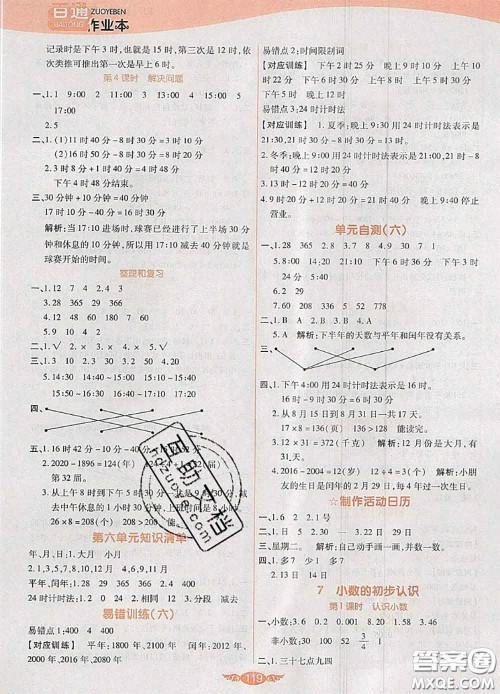 百通
BAITONG
ZUOYEBEN
作业本
记录时是下午3时,也就是15时,第三次是12时,依
次类推可推出第一次是早上6时。
第4课时 解决问题
一、1.1 9:00 2 11:00 3 13:00 4 15:00 5
17:00
2.5
二、(1)11时40分-8时30分=3时10分
(2)16时40分-5时30分=11时10分
三、30分钟+10分钟=40分钟
17时10分-40分钟=16时30分
解析:当17:10进场时,球赛已经进行了上半场30分
钟和休息的10分,所以17:10-40分钟=16:30就是
球赛开始的时间。
整理和复习
一、1.4 6 9 11 7 2.28 29 366
3.24 2 4.7 30 8 9 30
二、1.√ 2.× 3.√ 4.× 5.×
5.14:30 14:50 15:20 15:30 16:10 16:20
16:50 17:10 17:40 17:50
四、
五、1.16时42分-10分-45分=15时47分
2.2020-1896=124(年) 124÷4=31(届) 是
第32届。
3.从上午8时到下午5时30分是9时30分,下午5时
30分-上午8时-1时30分=8(时)
26×8=208(个) 208>200 能完成。
第六单元知识清单
年、月、日:1.大月 小月
2. 31 28 31 30 31 30 31 31 30 31 30 31
平年、闰年:1.28 365 29 366 2.4 400
24时计时法:1.24 24 2.上午 12 3.分段 减去
易错训练(六)
易错点1:400 4 400
【对应训练】 平年:1800年、1900年 闰年:2012年、
2000年、2016年、2020年、2080年
易错点2:时间限制词
【对应训练】 下午2时25分 晚上9时 上午10
时22分 下午5时32分 晚上8时30分 下午
5时 晚上12时
易错点3:24时计时法
【对应训练】 1.夏季:晚上9:30用24时计时法表示是
21:30,21时30分-8时30分=13时
2.冬季:晚上9:00用24时计时法表示是21:00,
21时-8时30分=12时30分
3.13时-12时30分=30分
4.9时20分+12时=21时20分 下午6时前停止
营业。
单元自测(六)
一、1.28 365 2.2 3.7 8 4.29
5.下午2时36分 下午6时36分 下午9时13分
6.2 29
7.180 108 336 8.630 752 778
二、1.× 2.× 3.√ 4.×
5.A 解析:下半年的天数与平年和闰年没有关系。
三、
四、1.下午4:00用24时计时法表示是16:00。
2.从8月15日到8月31日一共17天。
10×17=170(页) 170>136 能读完。
3.12×31=372(千克) 解析:12月份是大月,有31
天。
4.2016-2004=12(岁) 12÷4=3(个) 解析:小朋
友的生日是2月29日,说明是闰年的2月29日,所以
每4年过一次生日。
☆制作活动日历
一、1.6 2.2 1号
二、3.星期二。 解析:自己动手画一画,并数一数。
2.13日 14日
7 小数的初步认识
第1课时 认识小数
一、1.三十七点九四
119
互助文档
hdzuoye.com
答案圈
MXQE.COM